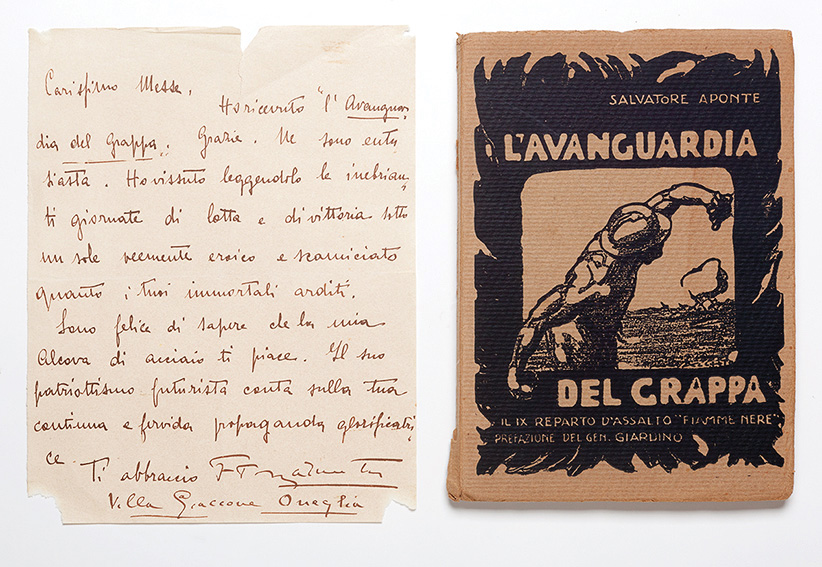 Carissimo Messe,
Ho ricevuto "l'Avanguar-
dia del Grappa,. Grazie. Ne sono entu
siasta. Ho vissuto leggendolo le inebrian-
ti giornate di lotta e di vittoria sotto
un sole veemente eroico e scamiciato
quanto i tuoi immortali arditi.
Sono felice di sapere che la mia
Alcova di acciaio ti piace. Il suo
patriottismo futurista conta sulla tua
continua e fervida propaganda glorificatri-
ce.
Ti abbraccio F T Marinetti
Villa Giaccone Oneglia
SALVATORE APONTE
L'AVANGUARDIA
DEL GRAPPA
IL IX REPARTO D'ASSALTO "FIAMME NERE"
PREFAZIONE DEL GEN. GIARDINO